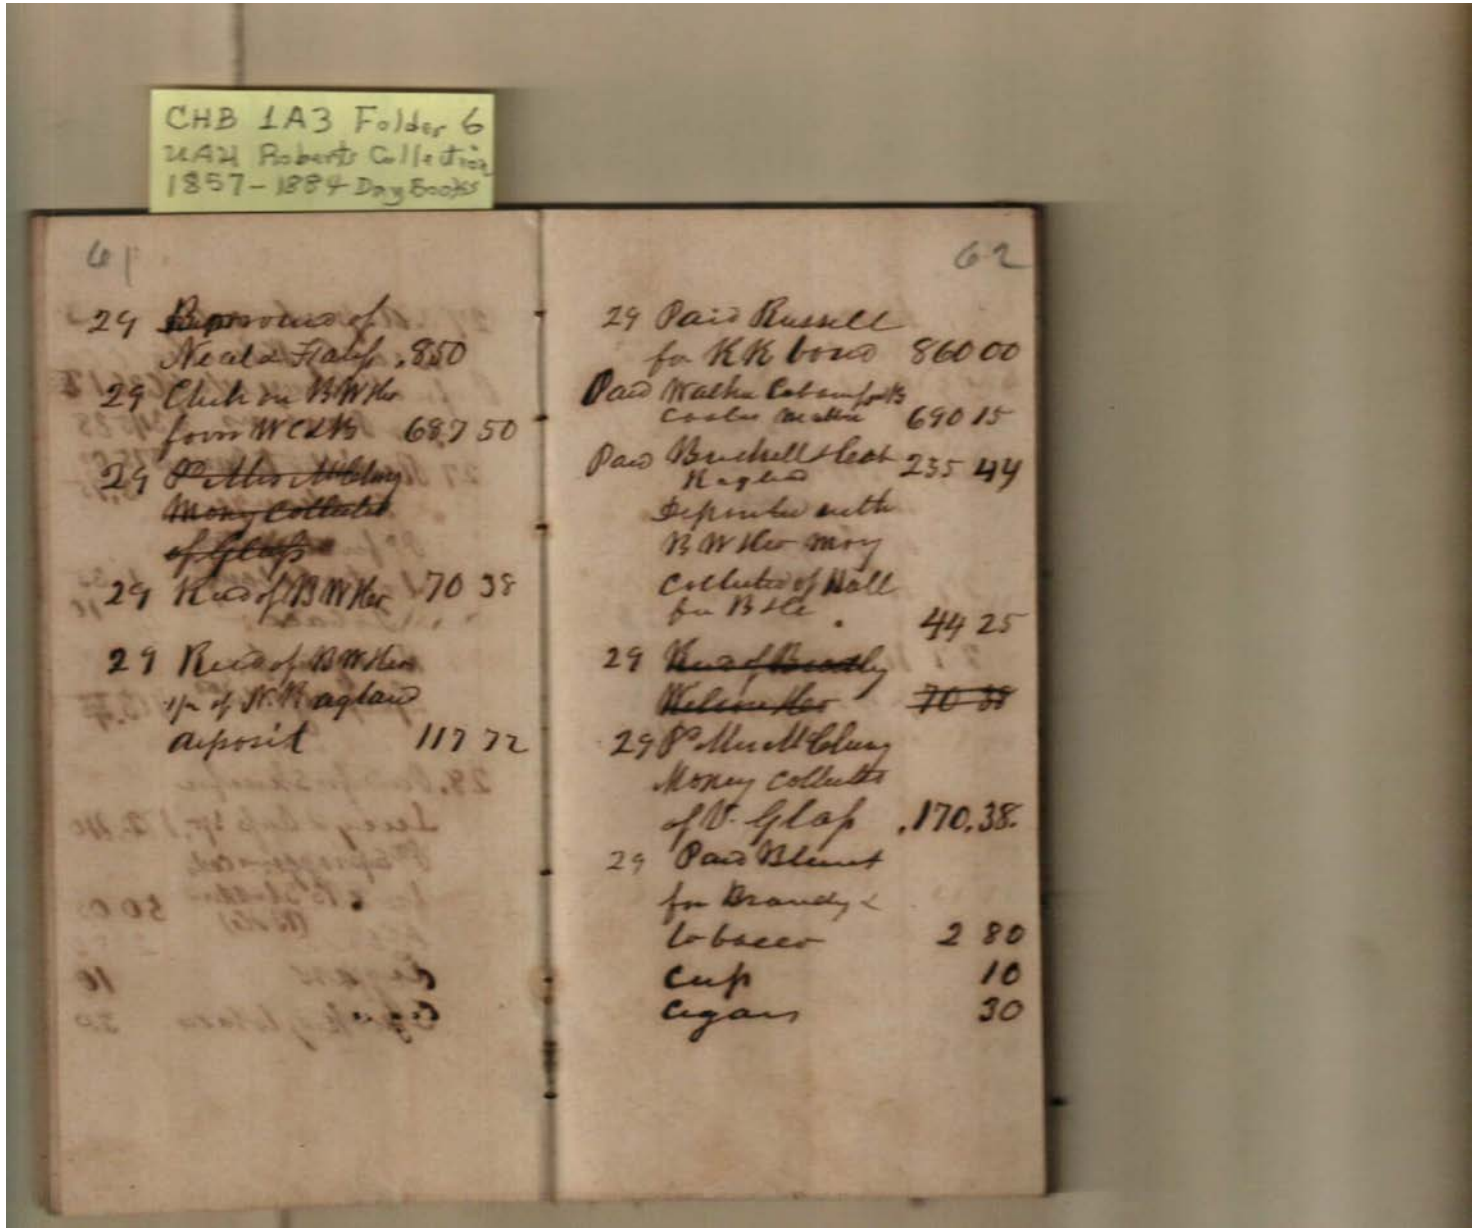 CHB 1A3 Folder 6
UAH Roberts Collection
1857-1884 Day Books
61
29 of
Neal & .850
29 Check on B W & co
favor W C & B 687 50
29 P Mrs McClung
Mony Collected
of Glass
29 Recd of B W & co 70 38
29 Recd of B W & co
of N. Ragland
deposit 117 72
62
29 Paid Russell
for KK bond 860 00
Paid Walker
690 15
Paid 235 44
Ragland
Deposited with
B W & co mony
Collected of Hall
for B & C 44 25
29 Recd of Bradly
Wilson & co 70 38
29 Pd Mrs McClung
Money collected
of V. Glass .170.38.
29 Paid Blunt
for Brandy &
tobacco 2 80
Cup 10
Cigars 30